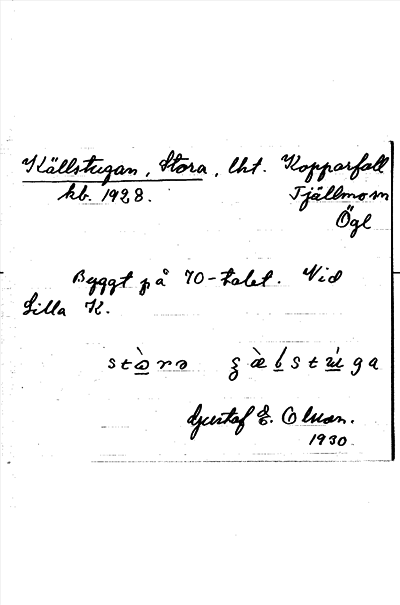 Källstugan, Stora, lht. Kopparfall
kb. 1928. Tjällmo sn
Ögl
Byggt på 70-talet. Vid
Lilla K.
Gustaf E. Olson.
1930